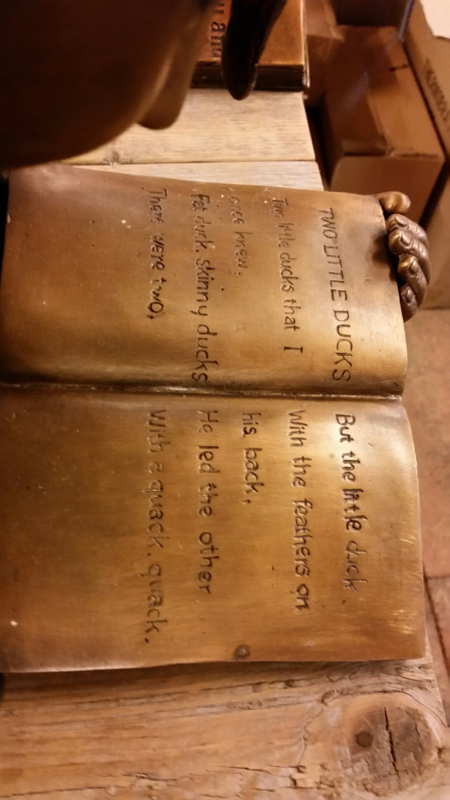 TWO LITTLE DUCKS
Two little ducks that I
once knew,
Fat duck, skinny ducks
There were two,
But the little duck.
With the feathers on
his back,
He led the other
With a quack, quack.